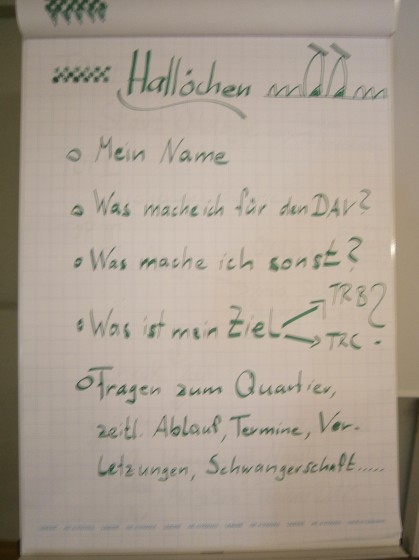 Hallöchen
Mein Name
Was mache ich für den DAV?
Was mache ich sonst?
Was ist mein Ziel TRB?
TRC
Fragen zum Quartier,
zeitl. Ablauf, Termine, Ver-
letzungen, Schwangerschaft.....